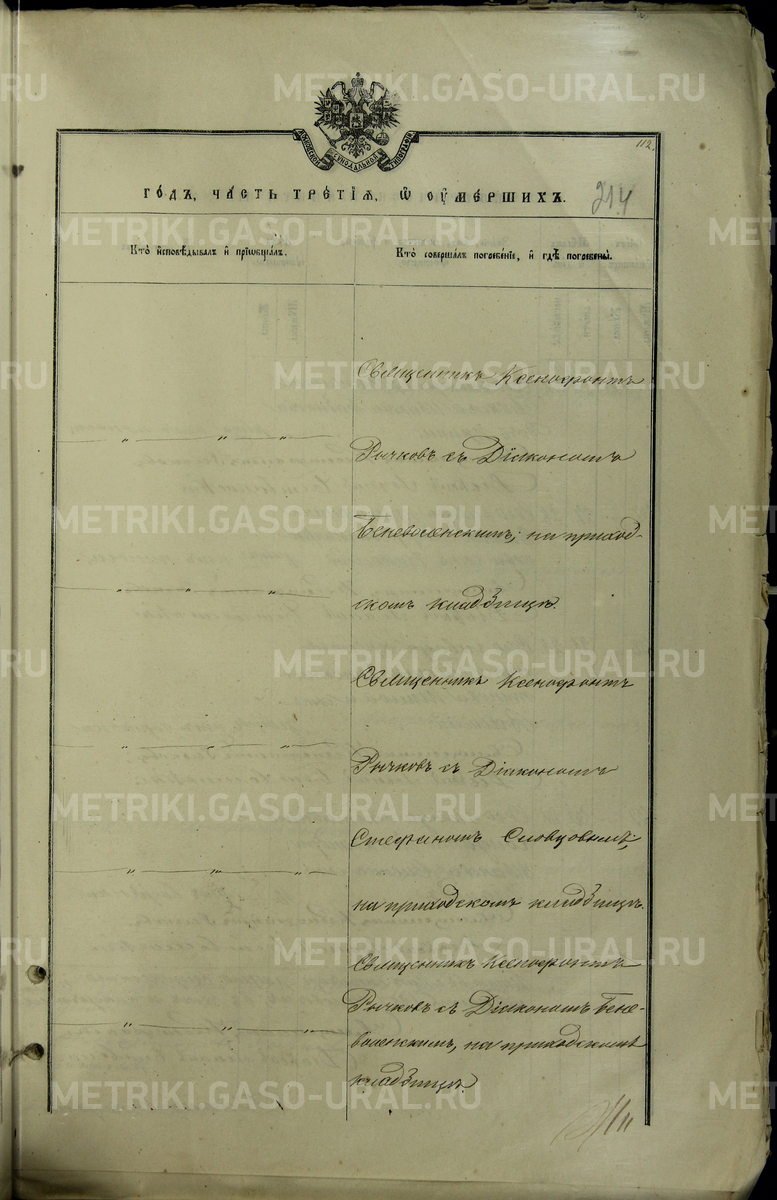 112.
МОСКОВСКОЙ СѴНОДАЛЬНОЙ ТИПОГРАФІИ
ГО́ДЪ, ЧА́СТЬ ТРЕ́ТІѦ, Ѡ ОУ҆МЕ́РШИХЪ.
214
Кто̀ и҆сповѣ́дывалъ и҆ прїѡбща́лъ.
Кто̀ соверша́лъ погребе́нїе, и҆ гдѣ̀ погребены̀.
Священникъ Ксенофонтъ
" " "
Рычковъ съ Діакономъ
Беневоленскимъ; на приход-
" " "
скомъ кладбищѣ.
Священникъ Ксенофонтъ
" " "
Рычковъ съ Діакономъ
Стефаномъ Словцовымъ;
" " "
на приходскомъ кладбищѣ.
Священникъ Ксенофонтъ
Рычковъ съ Діакономъ Бене-
" " "
воленскимъ, на приходскомъ
кладбищѣ
METRIKI.GASO-URAL.RU